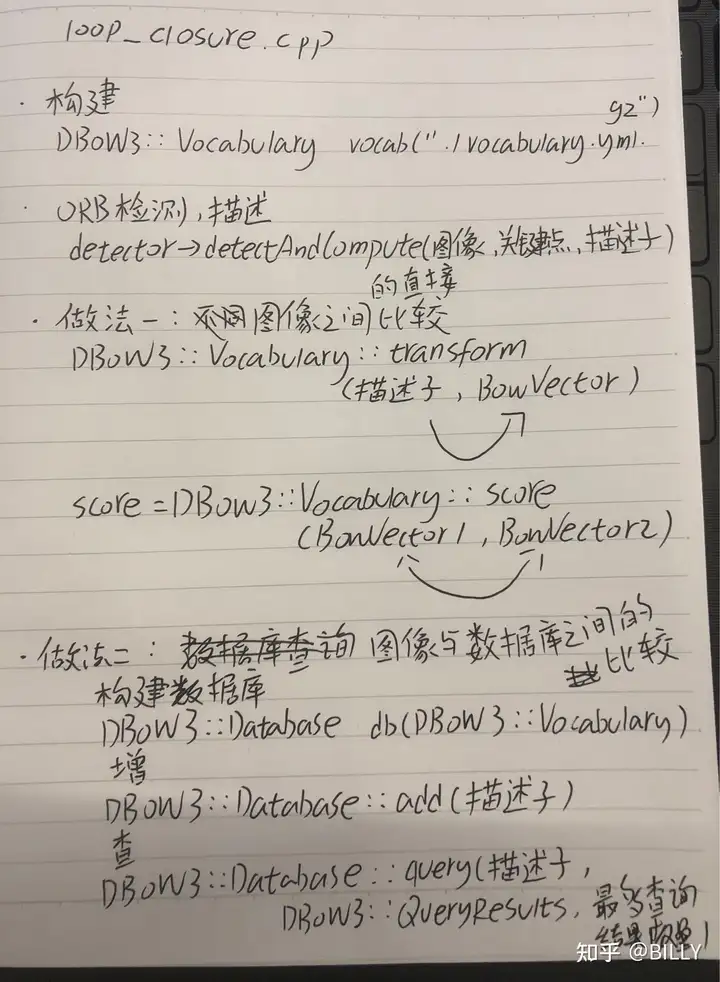 loop_closure.cpp
· 构建
gz")
DBoW3::Vocabulary vocab("./vocabulary.yml.
· ORB检测,描述
detector→detectAndCompute(图像,关键点,描述子)
的直接
· 做法一:图像之间比较
DBoW3::Vocabulary::transform
(描述子,BowVector)
score=DBow3::Vocabulary::score
(BowVector1,BowVector2)
· 做法二:数据库查询 图像与数据库之间的
比较
构建数据库
DBOW3::Database db(DBOW3::Vocabulary)
增
DBOW3::Database::add(描述子)
查
DBOW3::Database::query(描述子,
DBOW3::QueryResults,最多查询
结果数量)
知乎 @BILLY